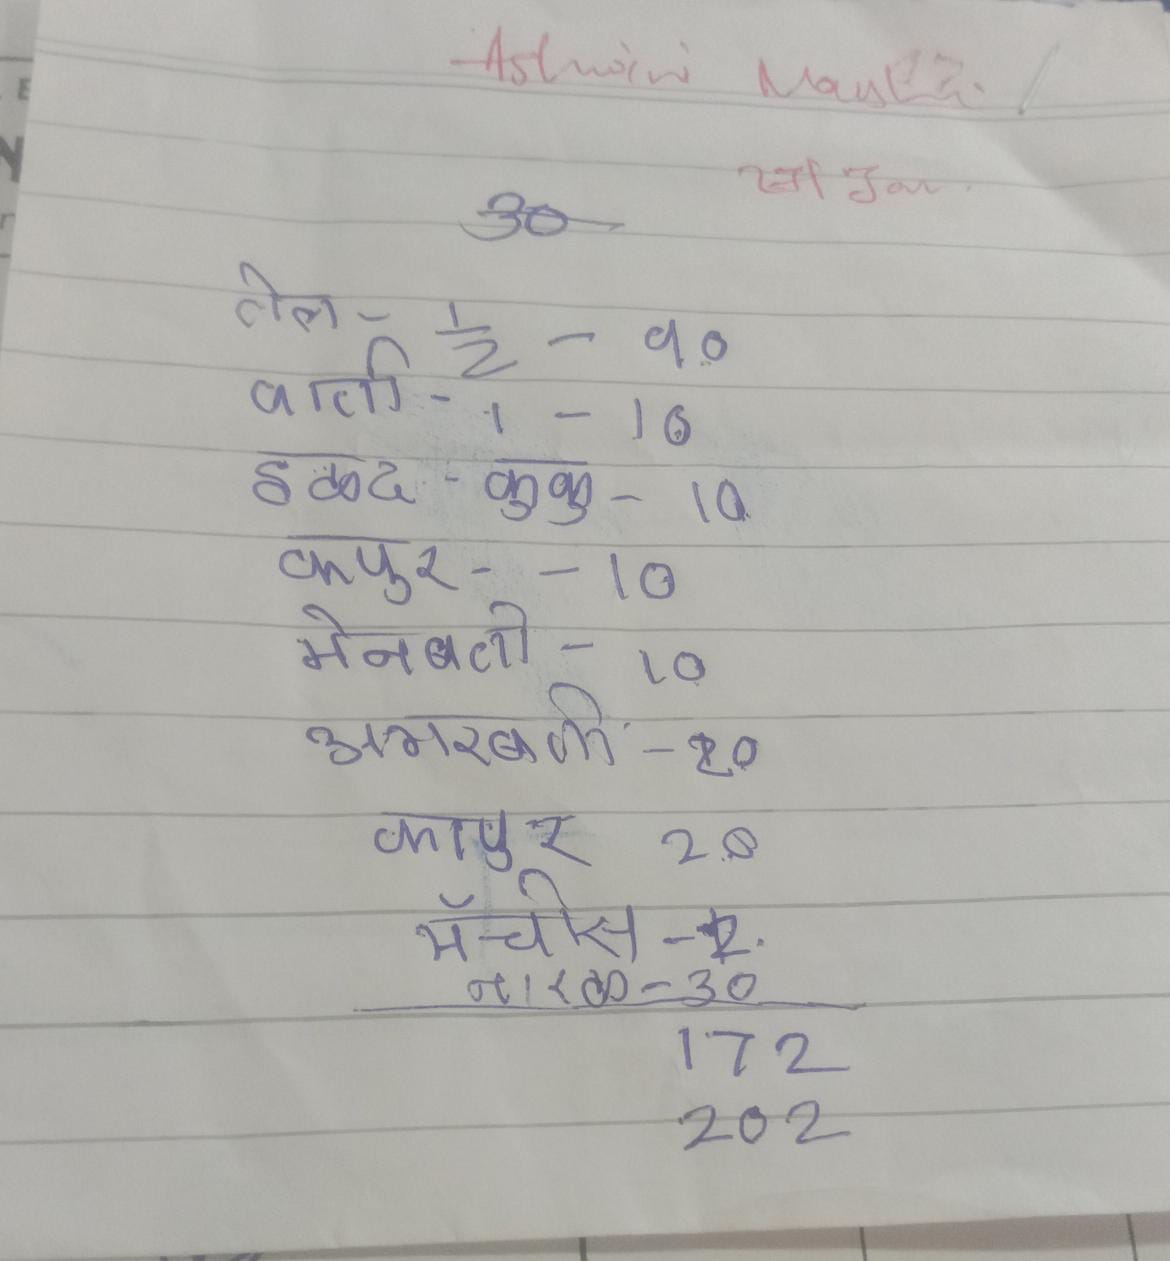 Ashwini
30
तेल - 1/2 - 90
वाती - 1 - 10
हळद - कुकु - 10
कपुर - - 10
मेनबती - 10
अगरबत्ती - 20
कापुर 20
मॅचीस - 2.
नारळ - 30
172
202